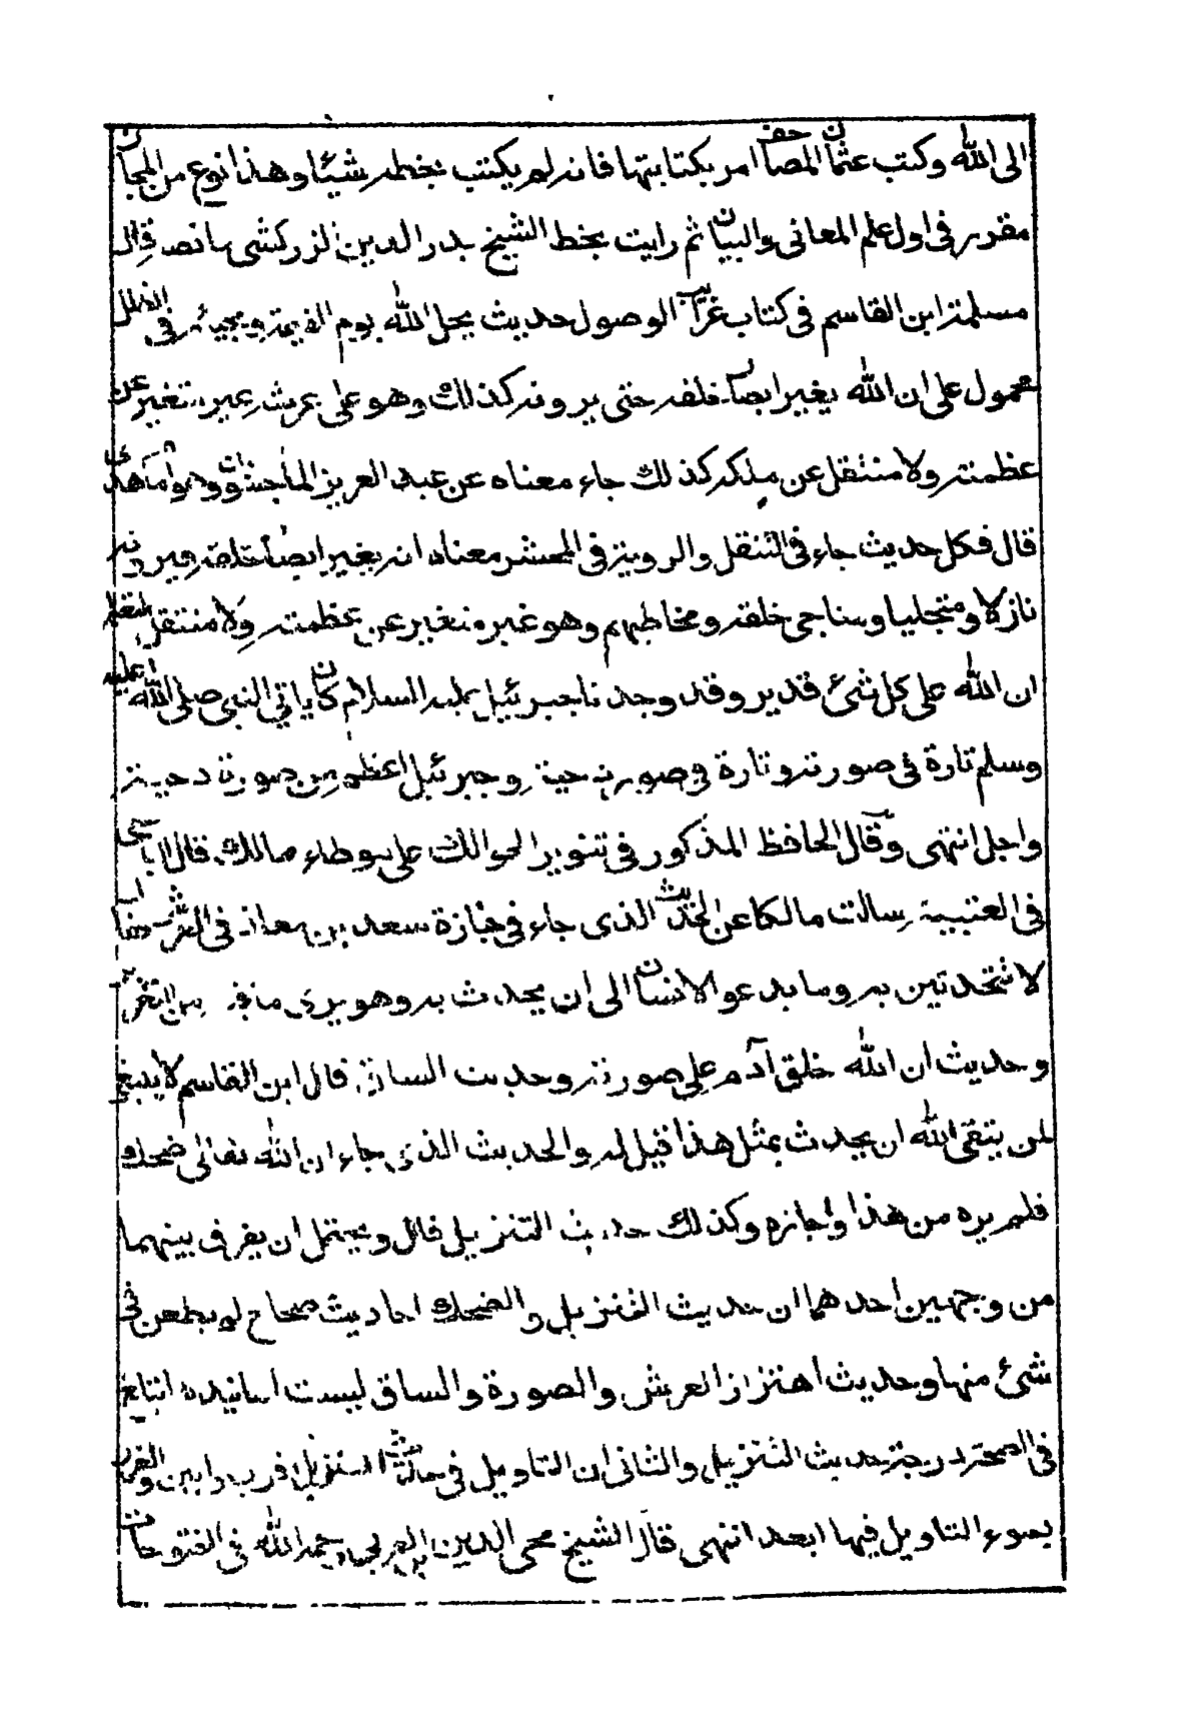 الى الله وكتب عثمان المصاحف امر بكتابتها فانه لم يكتب بخطه شيئا وهذا نوع من المجان
مقرر فى اول علم المعانى والبيان ثم رايت بخط الشيخ بدر الدين الزركشى ما نصه قال
مسلمة ابن القاسم فى كتاب غرايب الوصول حديث يحل الله يوم القيمة ومجيئه فى الظلل
محمول على ان الله يغير ابصار خلقه حتى يرونه كذلك وهو على عرشه غير متغير عن
عظمته ولا منتقل عن ملكه كذلك جاء معناه عن عبد العزيز الماجشون
قال فكل حديث جاء فى التنقل والروية فى المحشر معناه انه يغير ابصار خلقه فيرونه
نازلا ومتجليا ويناجى خلقه ومخاطبهم وهو غير متغير عن عظمته ولا منتقل لتعلم
ان الله على كل شئ قدير وقد وجدنا جبرئيل عليه السلام كان ياتى النبى صلى الله عليه
وسلم تارة فى صورته وتارة فى صورة دحية وجبرئيل اعظم من صورة دحية
واجل انتهى وقال الحافظ المذكور فى تنوير الحوالك على موطاء مالك قال الباجى
فى العتبية سالت مالكا عن الحديث الذى جاء فى جنازة سعد بن معاذ فى العرش فقال
لا تتحدثن به وما يدعو الانسان الى ان يحدث به وهو يرى ما فيه من التغرير
وحديث ان الله خلق آدم على صورته وحديث الساق قال ابن القاسم لا ينبغى
لمن يتقى الله ان يحدث بمثل هذا قيل له والحديث الذى جاء ان الله تعالى ضحك
فلم يره من هذا واجازه وكذلك حديث التنزيل قال ويحتمل ان يفرق بينهما
من وجهين احدهما ان حديث التنزيل والضحك احاديث صحاح لم يطعن فى
شئ منها وحديث اهتزاز العرش والصورة والساق ليست اسانيده
فى الصحة درجة حديث التنزيل والثانى ان التاويل فى حديث التنزيل اقرب وابين والغرر
بسوء التاويل فيها ابعد انتهى قال الشيخ محى الدين ابن العربى رحمه الله فى الفتوحات